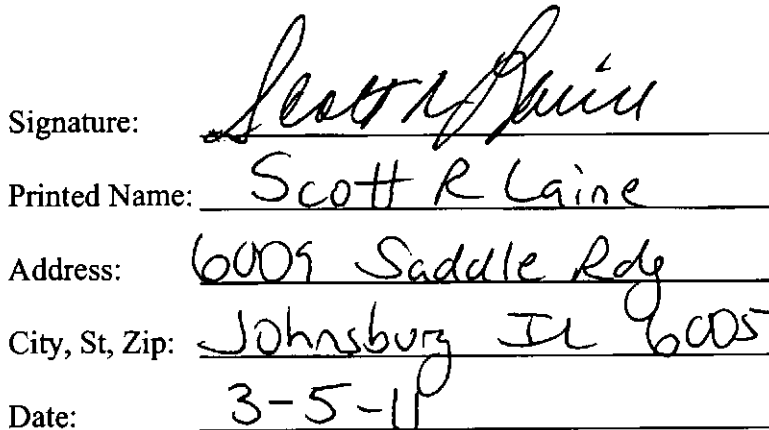 Signature: Scott R Laine
Printed Name: Scott R Laine
Address: 6009 Saddle Rdg
City, St, Zip: Johnsburg IL 6005
Date: 3-5-11